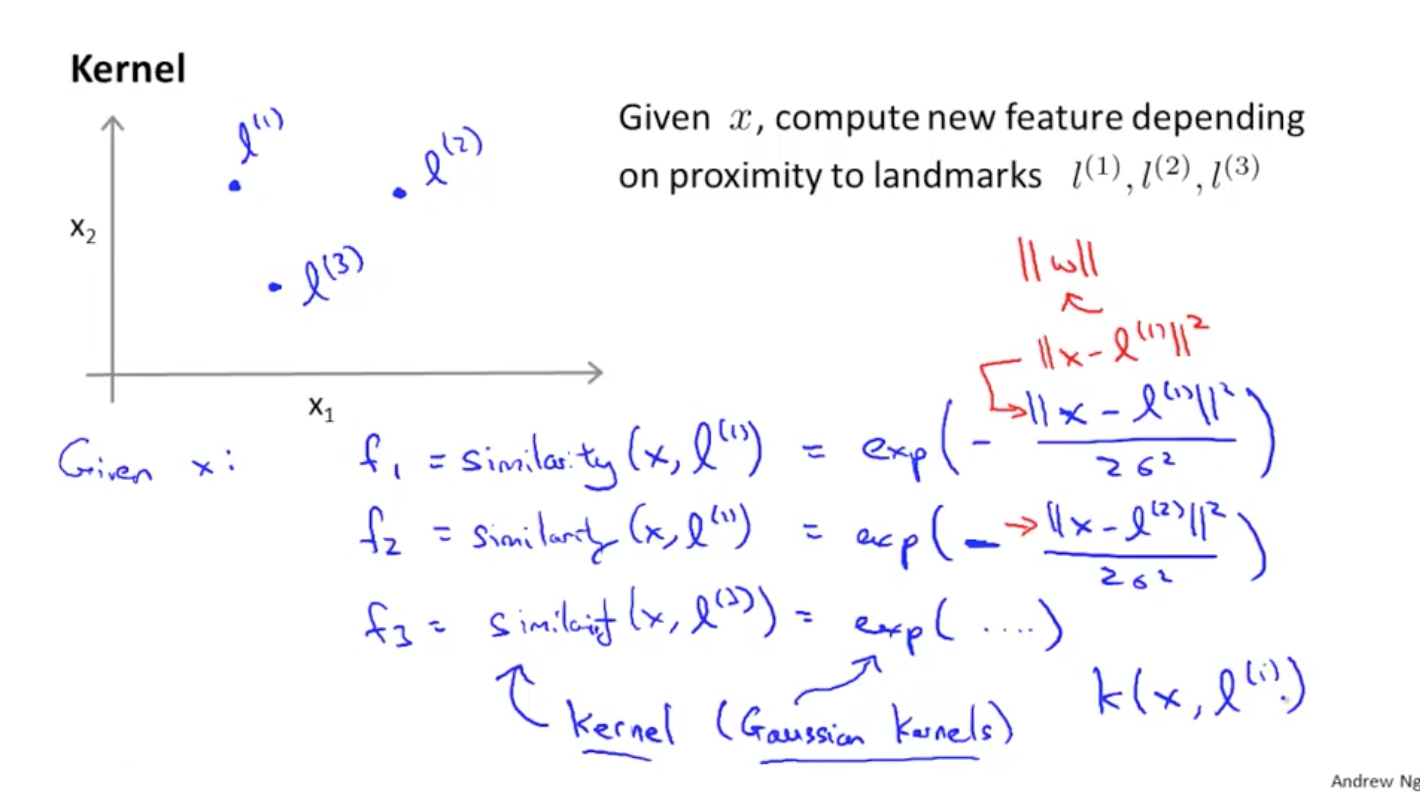 Kernel
Given x, compute new feature depending
on proximity to landmarks l^(1), l^(2), l^(3)
l^(1)
l^(2)
x₂
l^(3)
x₁
||w||
||x - l^(1)||²
Given x: f₁ = similarity (x, l^(1)) = exp(- ||x - l^(1)||² / 2σ²)
f₂ = similarity (x, l^(1)) = exp(- ||x - l^(2)||² / 2σ²)
f₃ = similarity (x, l^(3)) = exp( ....)
kernel (Gaussian kernels) k(x, l^(i))
Andrew Ng